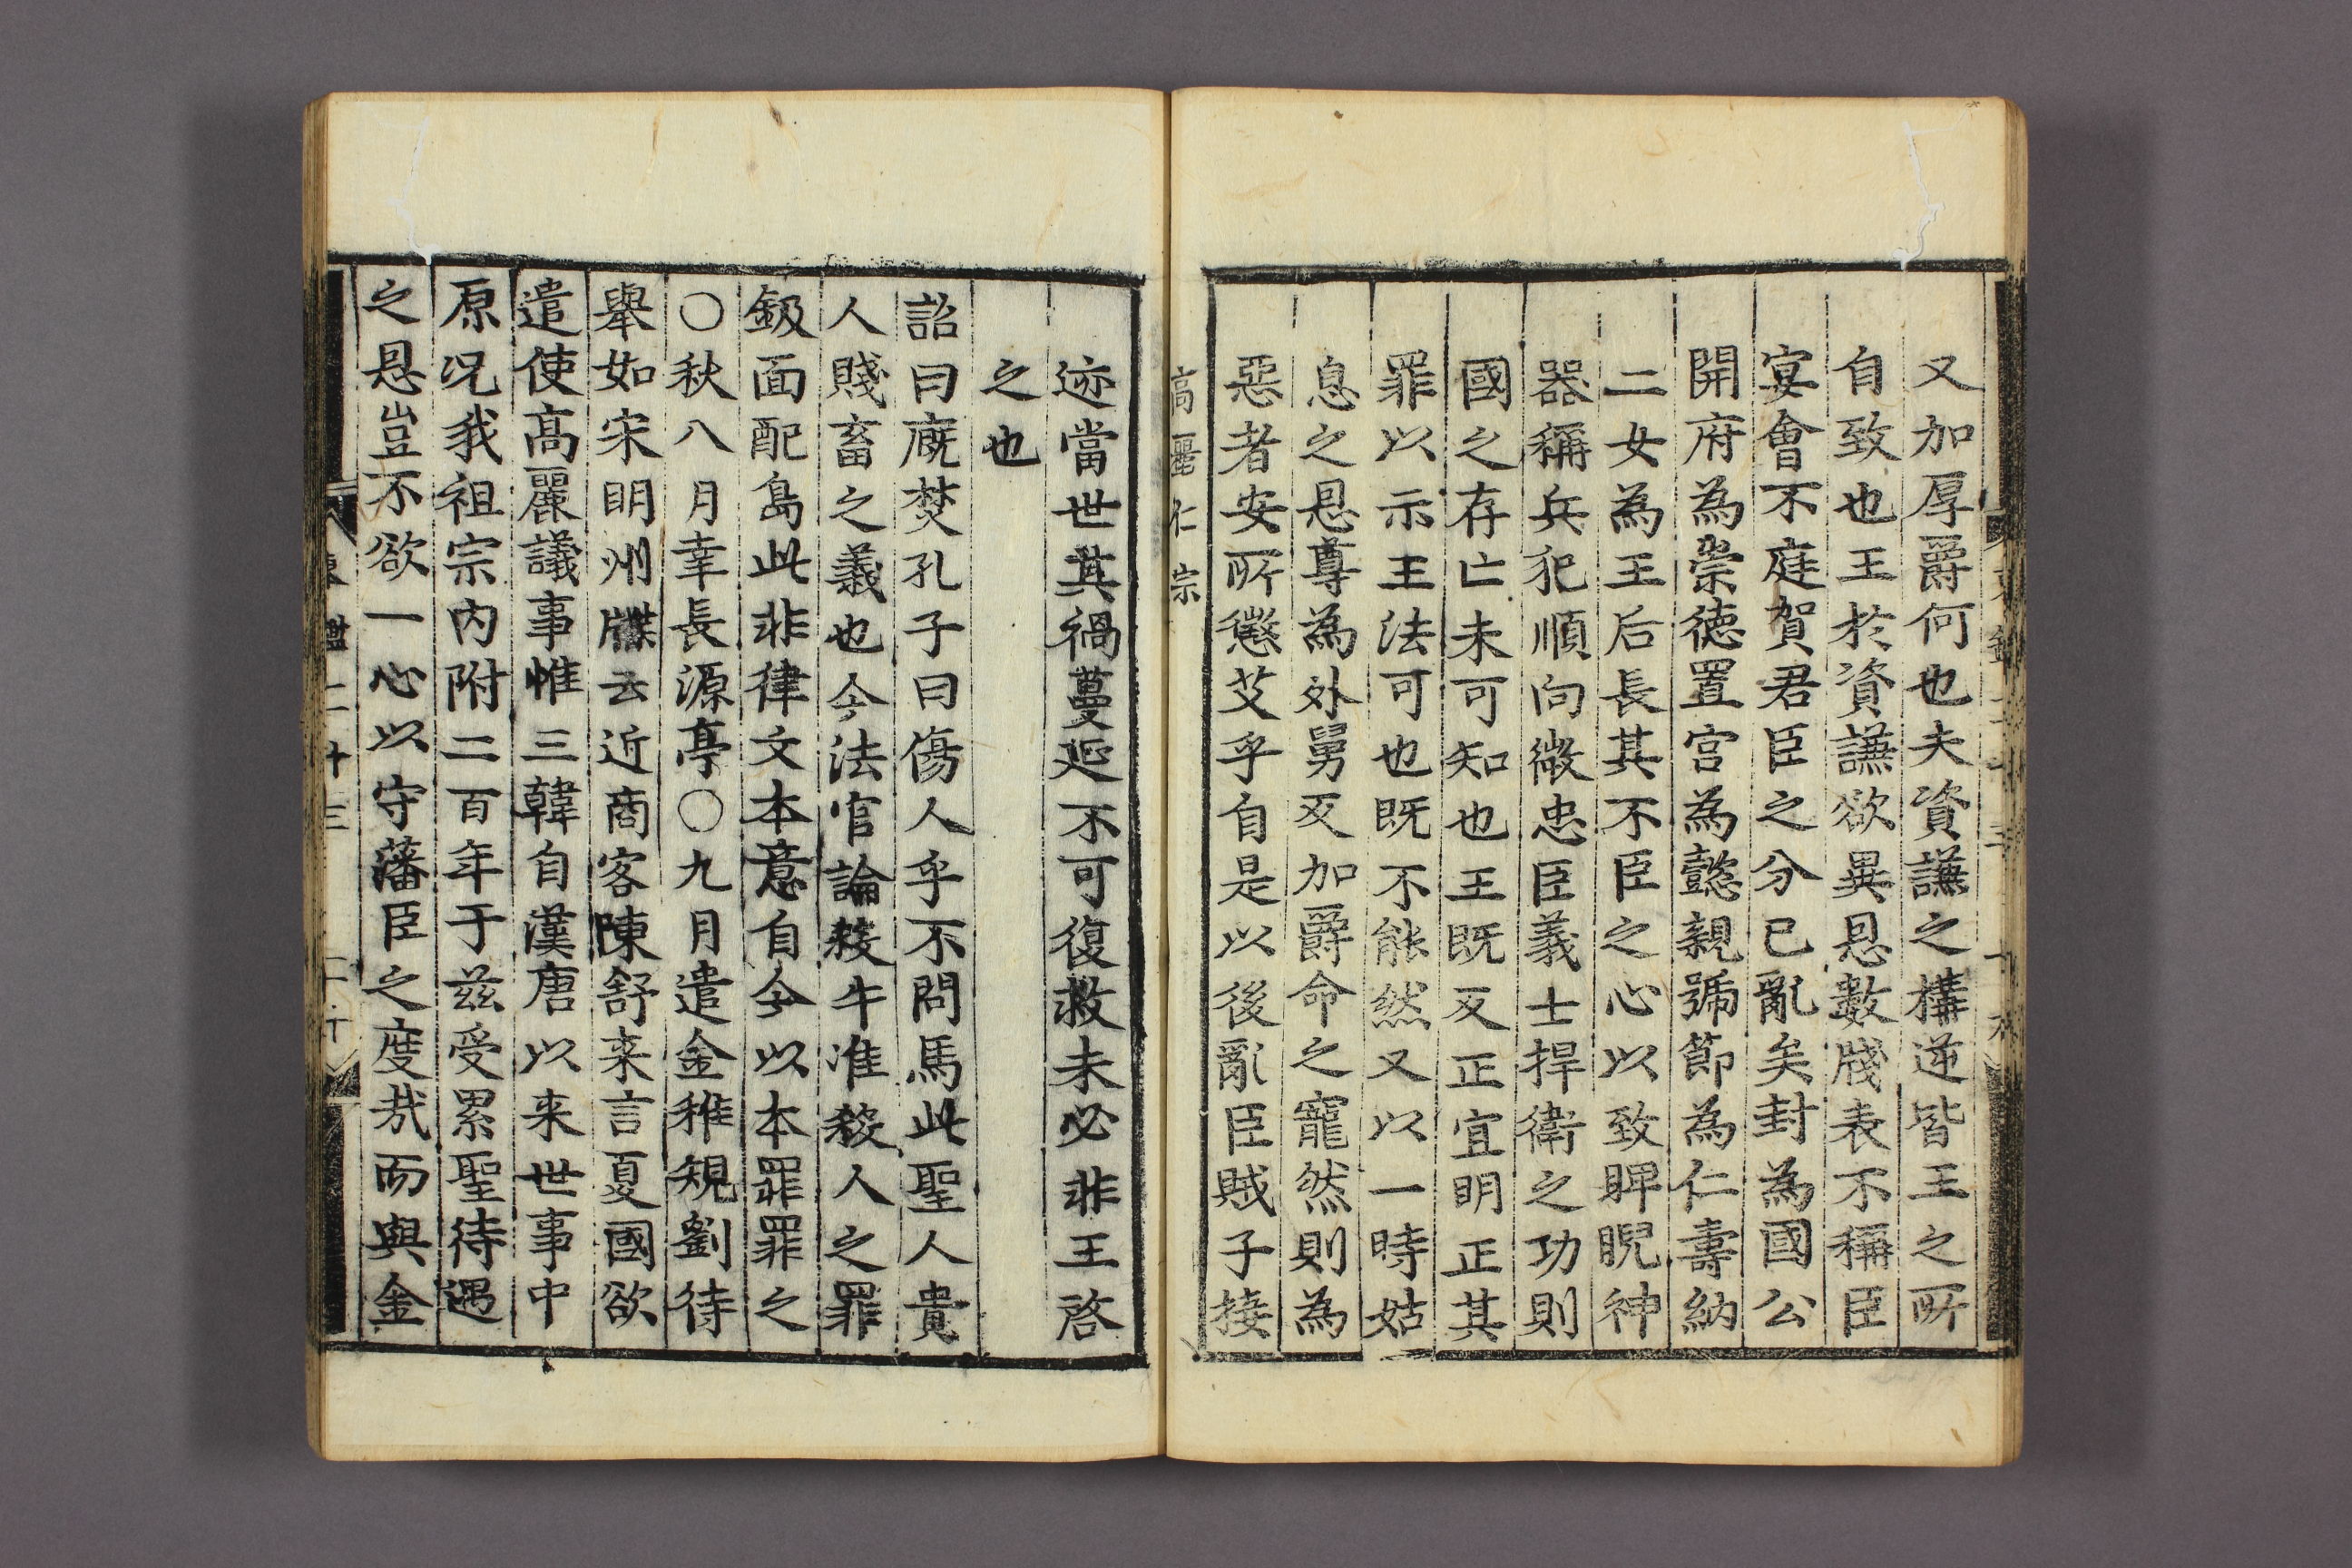 又加厚爵何也夫資謙之構逆皆王之所
自致也王於資謙欲異恩數牋表不稱臣
宴會不庭賀君臣之分已亂矣封為國公
開府為崇德置宮為懿親號節為仁壽納
二女為王后長其不臣之心以致睥睨神
器稱兵犯順向微忠臣義士捍衛之功則
國之存亡未可知也王既反正宜明正其
罪以示王法可也既不能然又以一時姑
息之恩尊為外舅又加爵命之寵然則為
惡者安所懲艾乎自是以後亂臣賊子接
高麗仁宗
迹當世其禍蔓延不可復救未必非王啓
之也
詔曰廐焚孔子曰傷人乎不問馬此聖人貴
人賤畜之義也今法官論殺牛准殺人之罪
鈒面配島此非律文本意自今以本罪罪之
〇秋八月幸長源亭〇九月遣金稚規劉待
舉如宋明州牒云近商客陳舒来言夏國欲
遣使高麗議事惟三韓自漢唐以来世事中
原况我祖宗內附二百年于玆受累聖待遇
之恩豈不欲一心以守藩臣之度㢤而與金
東鑑二十三